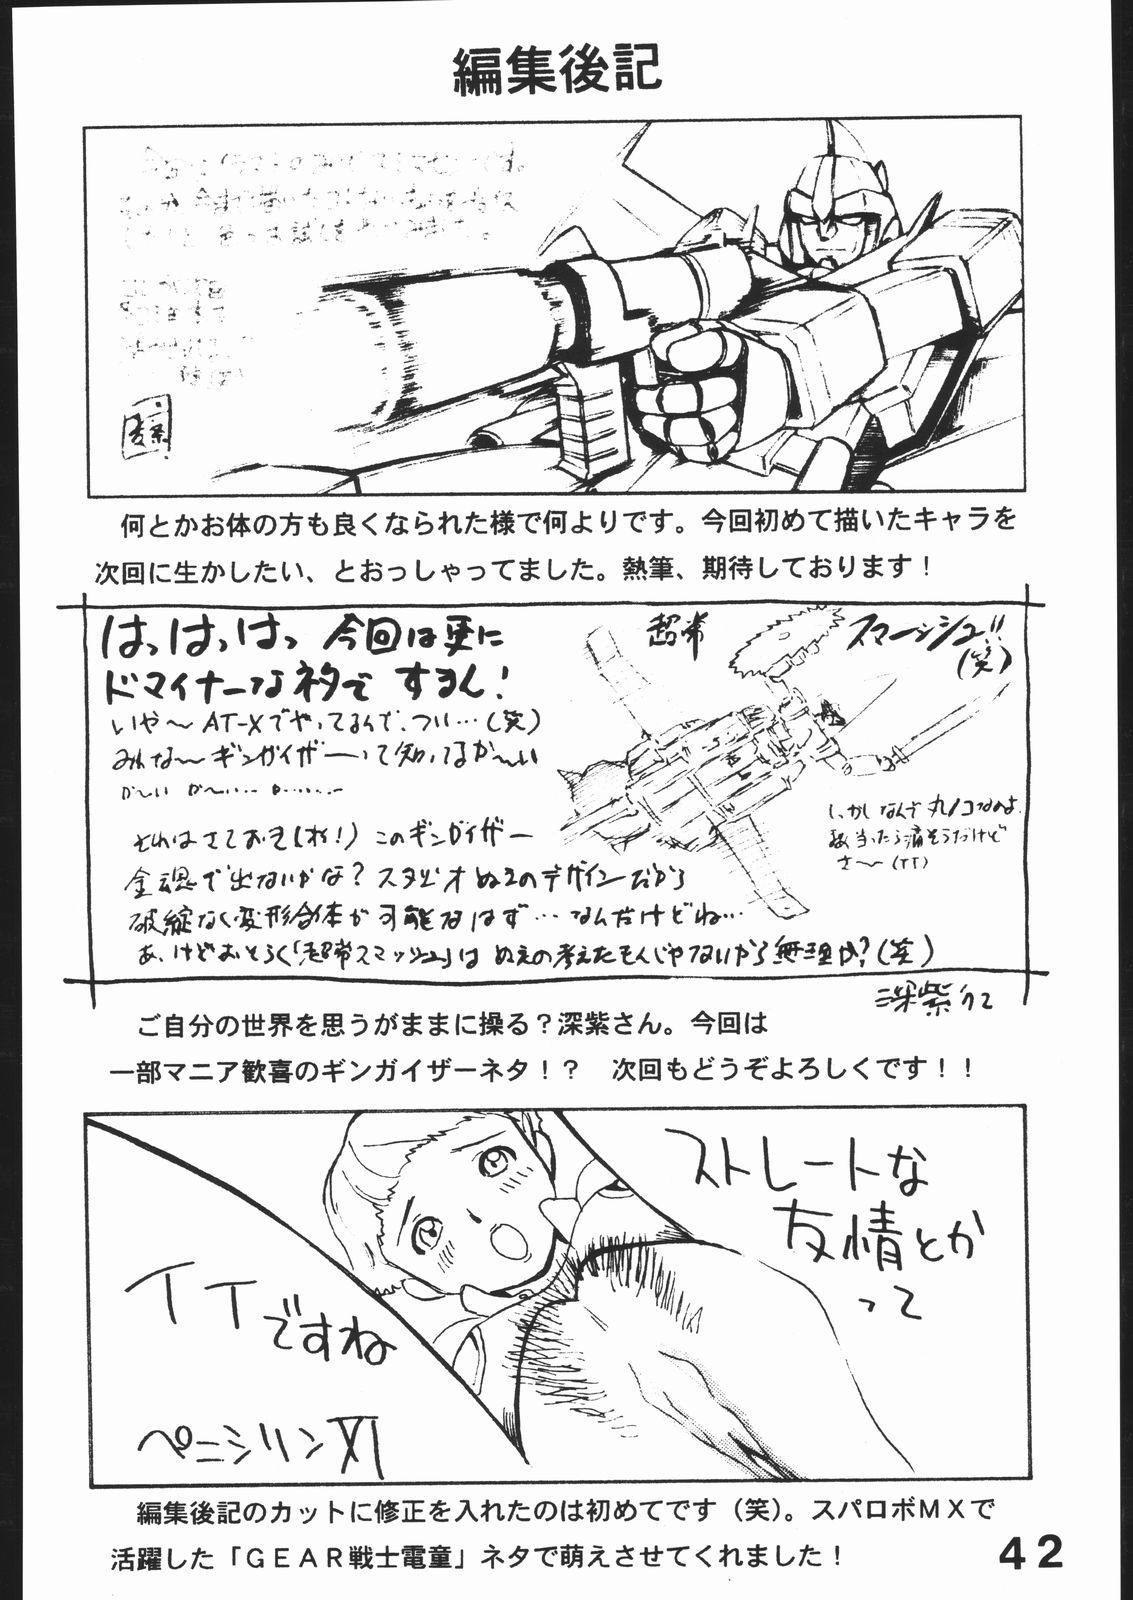 編集後記
何とかお体の方も良くなられた様で何よりです。今回初めて描いたキャラを
次回に生かしたい、とおっしゃってました。熱筆、期待しております！
はっはっはっ 今回は更に
ドマイナーなネタで すまん！
いや〜 AT-Xでやってるんで、つい…(笑)
みんな〜ギンガイザーって知ってるか〜い
か〜い か〜い…
超常
スマーッシュ!!
(笑)
しかしなんで丸ノコなのよ
当たったら痛そうだけど
さ〜(TT)
それはさておき(わ!) このギンガイザー
金魂で出ないかな? スタジオぬえのデザインだから
破綻なく変形合体が可能なはず…なんだけどね…
あ、けどおそらく「超常スマッシュ」は ぬえの考えたもんじゃないから無理か?(笑)
深紫
ご自分の世界を思うがままに操る？深紫さん。今回は
一部マニア歓喜のギンガイザーネタ！？ 次回もどうぞよろしくです！！
ストレートな
友情とか
って
イイ
ですね
ペニシリンXI
編集後記のカットに修正を入れたのは初めてです（笑）。スパロボＭＸで
活躍した「ＧＥＡＲ戦士電童」ネタで萌えさせてくれました！
42